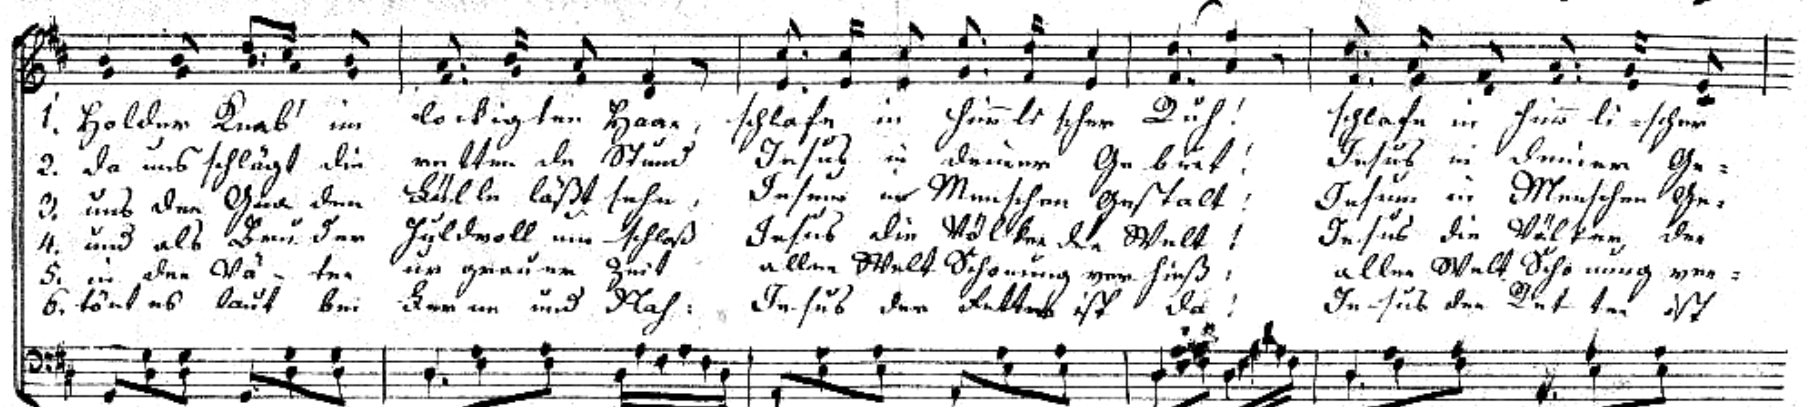 1. Holder Knab' im lockigten Haar, schlafe in him̅lischer Ruh! schlafe in him̅li-scher
2. da uns schlägt die retten de Stund Jesus in deiner Ge burt! Jesus in deiner Ge-
3. uns der Gna den Fülle läßt sehn, Jesum in Menschen Gestalt! Jesum in Menschen Ge-
4. und als Bru der huldvoll um-schloß Jesus die Völker der Welt! Jesus die Völker der
5. in der Vä-ter ur grauer Zeit aller Welt Schonung ver hieß: aller Welt Schonung ver-
6. tönt es laut bei Ferne und Nah: Jesus der Retter ist da! Je-sus der Ret ter ist